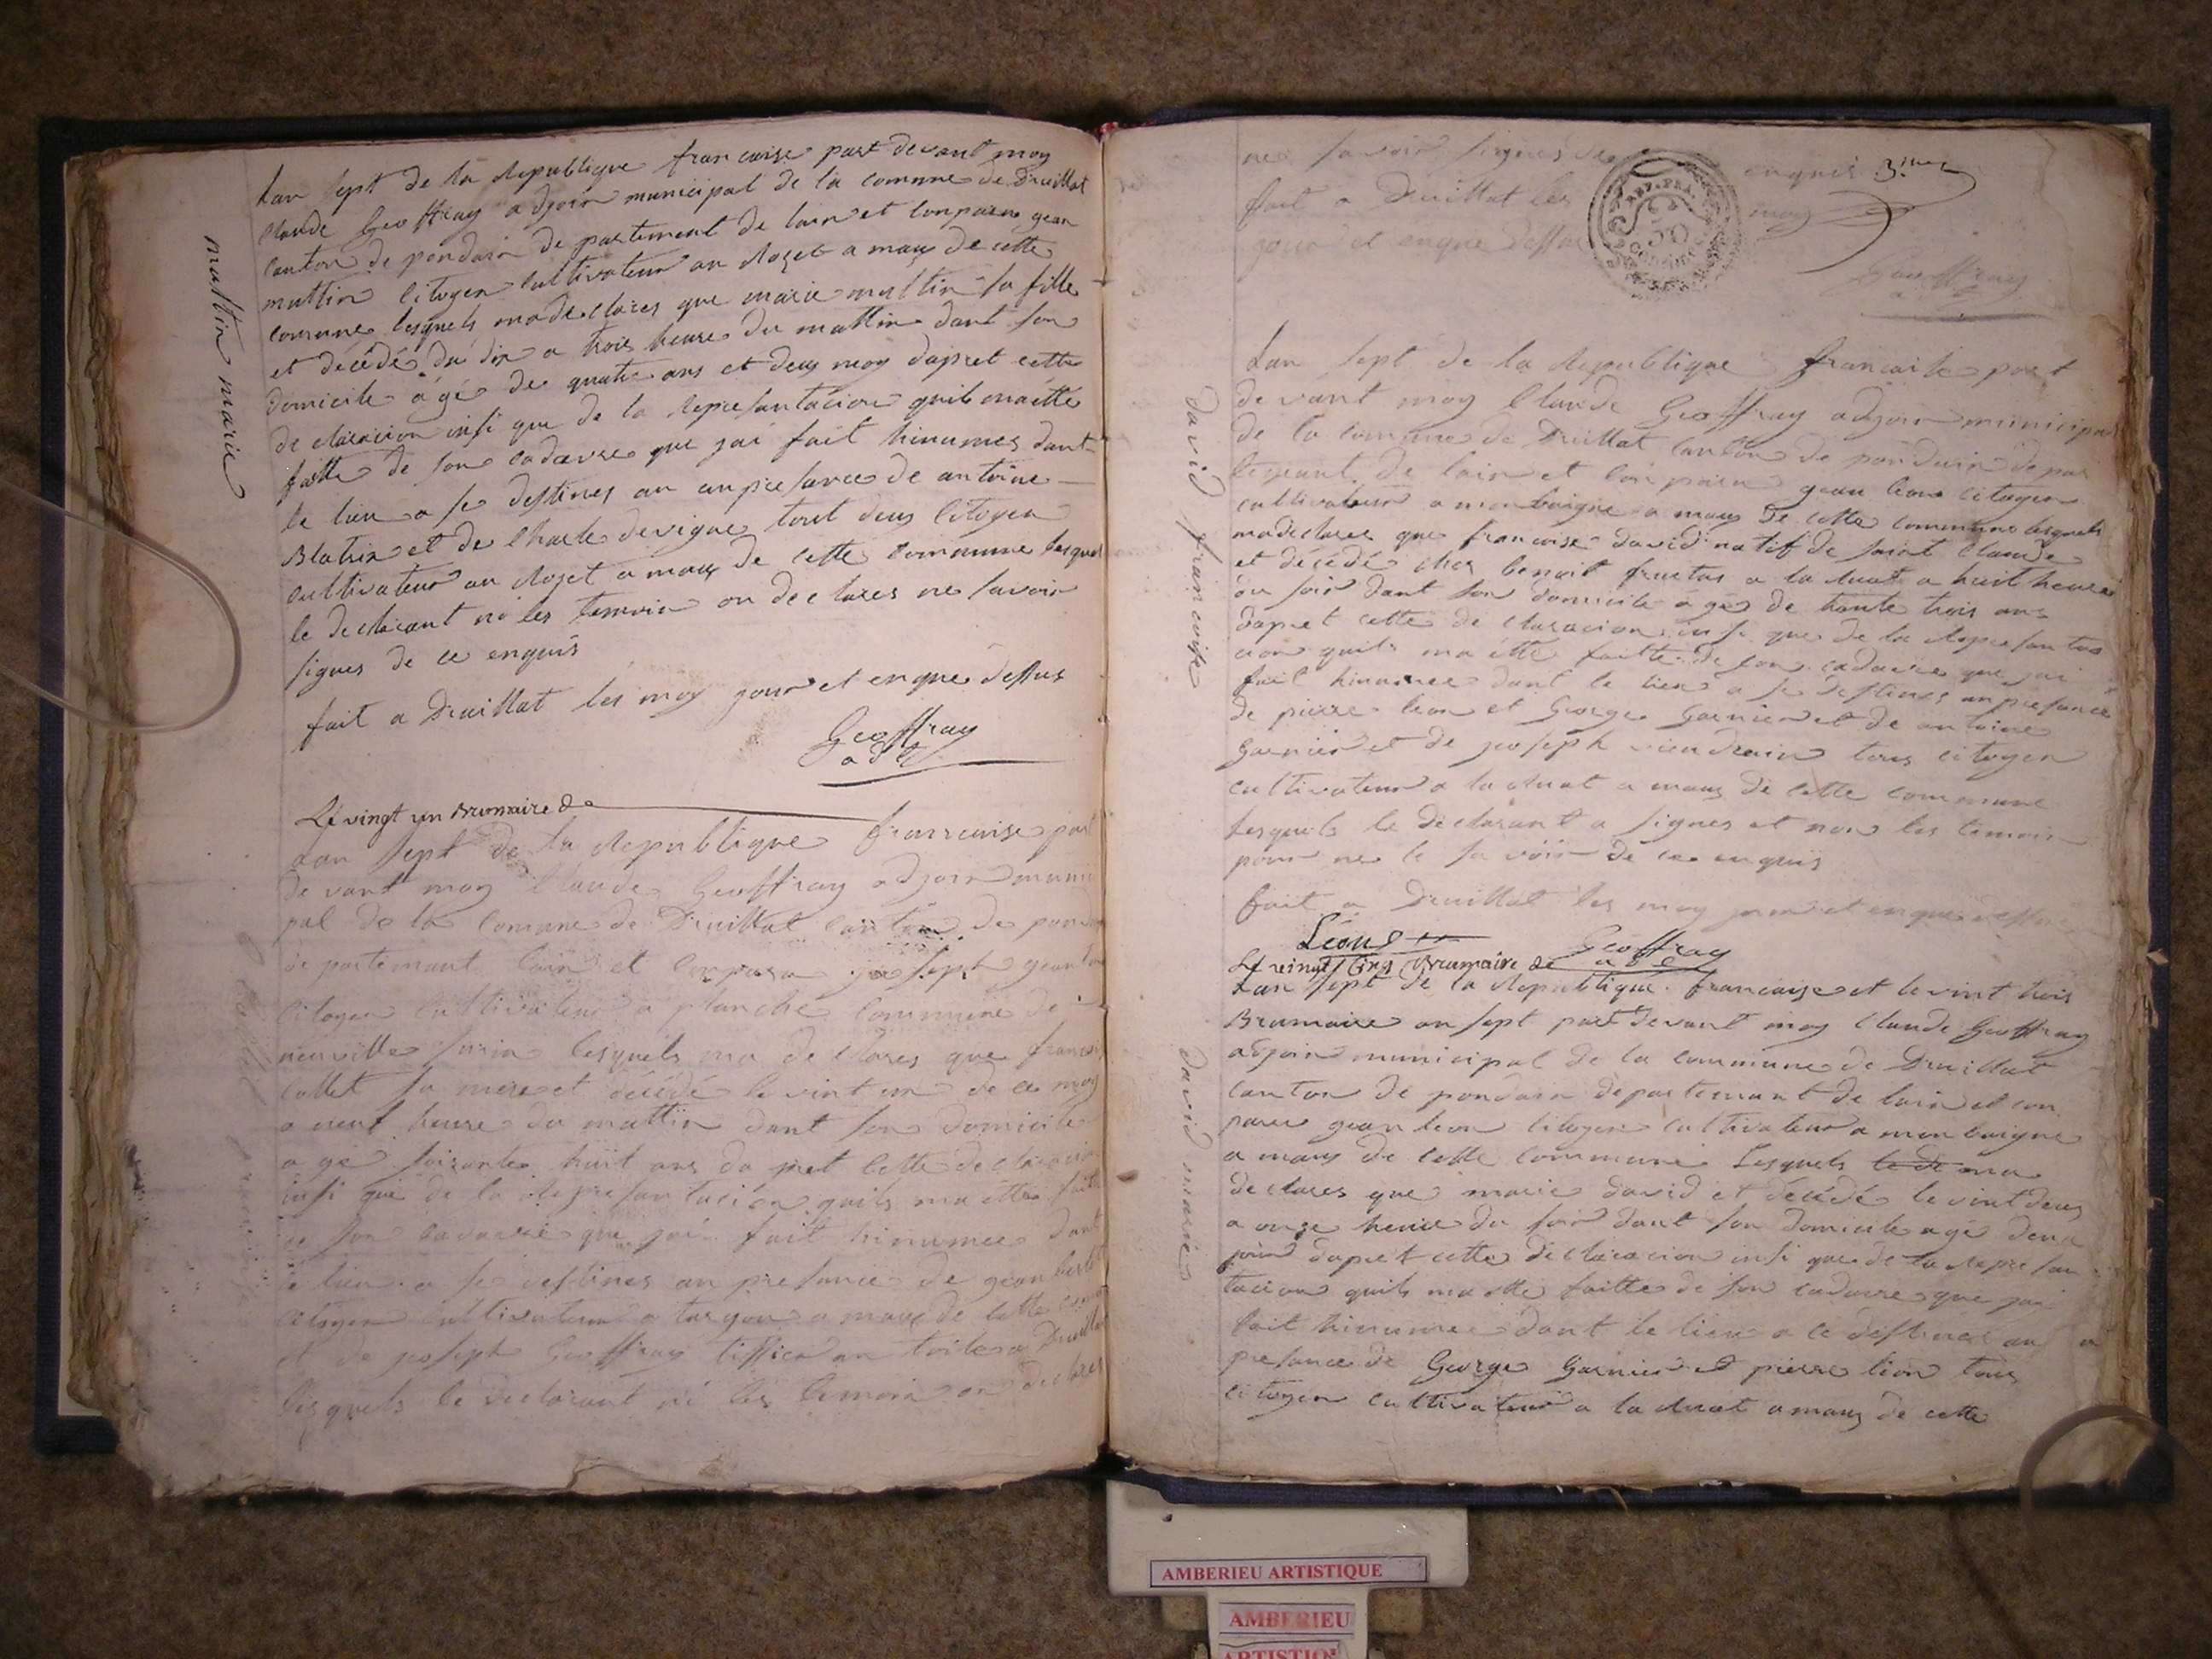 mattin marie
Lan sept de la Republique francaise part devant moy
Claude Geoffray adjoin municipal de la comune de Druillat
canton de pondain departement de lain et conparu gean
mattin citoyen cultivateur au Rozet a maux de cette
comune lesquels ma declares que marie mattin sa fille
et décédé du dix a trois heure du mattin dant son
domicile agé de quatre ans et deux moy dapret cette
declaracion insi que de la Represantacion quils ma étté
faitte de son cadavre que jai fait hinumer dant
le lieu a se destines au anpresance de antoine
Blatrix et de Charle devigne tout deux Citoyen
cultivateur au Rozet a maux de cette commune lesquel
le declarant ni les temoin on declares ne savoir
signes de ce enquis
fait a Druillat les moy jour et enque dessus
Geoffray
adt
Le vingt un Brumaire de
Lan sept de la Republique francaise part
devant moy Claude Geoffray adjoin munici
pal de la Comune de Druillat canton de pondain
departemant lain et conparu joseph gean
Citoyen cultivateur a planche commune de
neuville surain lesquels ma declares que francoi
collet sa mere et décédé le vint un de ce moy
a neuf heure du mattin dant son domicile
agé soisante huit ans dapret cette declaracion
insi que de la Represantacion quils ma étté faitte
de son cadavre que jai fait hinumer dant
le lieu a se destines an presance de gean
citoyen cultivateur a turgon a maux de cette
et de joseph Geoffray tissier an toile a Druillat
lesquels le declarant ni les temoin on declares
ne savoir signes de enquis 3.
fait a Druillat les moy
jour et enque dessus
REP. FRA.
50
CENTIMES
Geoffray
david francoise
Lan sept de la Republique francaise part
devant moy Claude Geoffray adjoin municipal
de la commune de Druillat canton de pondain depar
temant de lain et conparu gean leon citoyen
cultivateur a monbaigne a maux de cette commune lesquels
ma declares que francoise david natif de saint Claude
et décédé chez benoit fructus a la Ruat a huit heures
du soir dant son domicile agé de trante trois ans
dapret cette declaracion insi que de la Represanta
cion quils ma étté faitte de son cadavre que jai
fait hinumer dant le lieu a se destines anpresance
de pierre leon et George Garnier et de antoine
Garnier et de joseph viendrain tous citoyen
cultivateur a la Ruat a maux de cette commune
lesquels le declarant a signes et non les temoin
pour ne le savoir de ce enquis
fait a Druillat les moy jour et enque dessus
Léon Geoffray
Le vingt cinq Brumaire de adt
david marie
Lan sept de la Republique francaise et le vint trois
Brumaire an sept part devant moy Claude Geoffray
adjoin municipal de la commune de Druillat
canton de pondain departemant de lain et con
paru gean leon citoyen cultivateur a monbaigne
a maux de cette commune Lesquels le de ma
declares que marie david et décédé le vint deux
a onze heure du soir dant son domicile agé deux
jour dapret cette declaracion insi que de la Represan
tacion quils ma étté faitte de son cadavre que jai
fait hinumer dant le lieu a ce destines an
presance de George Garnier et pierre leon tous
citoyen cultivateur a la Ruat a maux de cette
AMBERIEU ARTISTIQUE
AMBERIEU
ARTISTIQUE